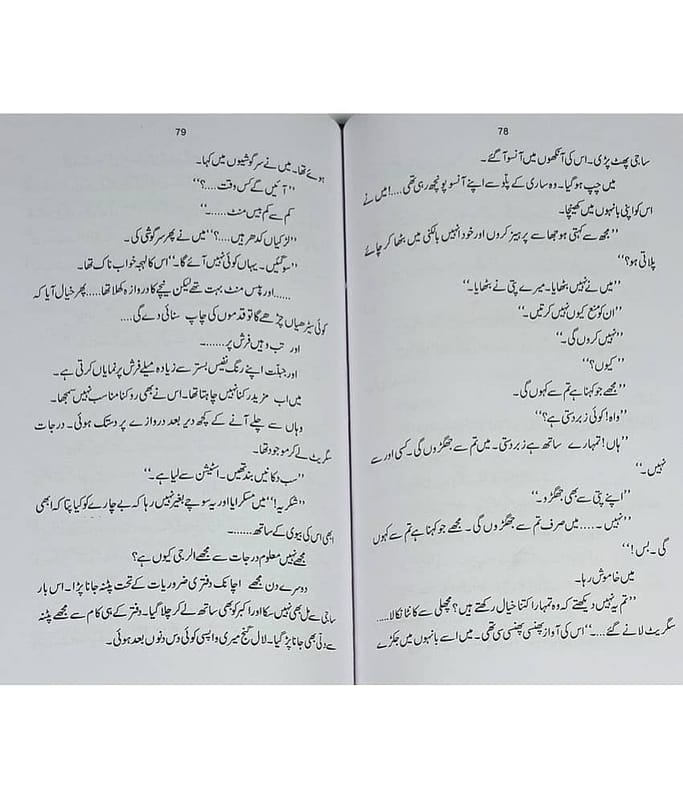 78
ساجی پھٹ پڑی۔ اس کی آنکھوں میں آنسو آ گئے۔
میں چپ ہو گیا۔ وہ ساری کے پلو سے اپنے آنسو پونچھ رہی تھی....! میں نے
اس کو اپنی بانہوں میں کھینچا۔
’’مجھ سے کہتی ہو جھا سے پرہیز کروں اور خود انہیں بالکنی میں بٹھا کر چائے
پلاتی ہو؟‘‘
’’میں نے نہیں بٹھایا۔ میرے پتی نے بٹھایا۔‘‘
’’ان کو منع کیوں نہیں کرتیں۔‘‘
’’نہیں کروں گی۔‘‘
’’کیوں؟‘‘
’’مجھے جو کہنا ہے تم سے کہوں گی۔
’’واہ! کوئی زبردستی ہے؟‘‘
’’ہاں! تمہارے ساتھ ہے زبردستی۔ میں تم سے جھگڑوں گی۔ کسی اور سے
نہیں۔‘‘
’’اپنے پتی سے بھی جھگڑو۔‘‘
’’نہیں۔.... میں صرف تم سے جھگڑوں گی۔ مجھے جو کہنا ہے تم سے کہوں
گی۔ بس!‘‘
میں خاموش رہا۔
’’تم یہ نہیں دیکھتے کہ وہ تمہارا کتنا خیال رکھتے ہیں؟ مچھلی سے کانٹا نکالا.....
سگریٹ لانے گئے....‘‘ اس کی آواز پھنسی پھنسی سی تھی۔ میں اسے بانہوں میں جکڑے
79
ہوئے تھا۔ میں نے سرگوشیوں میں کہا۔
’’آئیں گے کس وقت....؟‘‘
کم سے کم بیس منٹ.....۔‘‘
’’لڑکیاں کدھر ہیں....؟‘‘ میں نے پھر سرگوشی کی۔
’’سو گئیں۔ یہاں کوئی نہیں آئے گا۔‘‘ اس کا لہجہ خواب ناک تھا۔
......اور بیس منٹ بہت تھے لیکن نیچے کا دروازہ کھلا تھا..... پھر خیال آیا کہ
کوئی سیڑھیاں چڑھے گا تو قدموں کی چاپ سنائی دے گی....
اور تب وہیں فرش پر......۔
اور جبلت اپنے رنگ نفیس بستر سے زیادہ میلے فرش پر نمایاں کرتی ہے۔
میں اب مزید رکنا نہیں چاہتا تھا۔ اس نے بھی روکنا مناسب نہیں سمجھا۔
وہاں سے چلے آنے کے کچھ دیر بعد دروازے پر دستک ہوئی۔ درجات
سگریٹ لے کر موجود تھا۔
’’سب دکانیں بند تھیں۔ اسٹیشن سے لیا ہے۔‘‘
’’شکریہ!‘‘ میں مسکرایا اور یہ سوچے بغیر نہیں رہا کہ بے چارے کو کیا پتا کہ ابھی
ابھی اس کی بیوی کے ساتھ.......۔
مجھے نہیں معلوم درجات سے مجھے الرجی کیوں ہے؟
دوسرے دن مجھے اچانک دفتری ضروریات کے تحت پٹنہ جانا پڑا۔ اس بار
ساجی سے مل بھی نہیں سکا اور اکبر کو بھی ساتھ لے کر چلا گیا۔ دفتر کے ہی کام سے مجھے پٹنہ
سے دلّی بھی جانا پڑ گیا۔ لال گنج میری واپسی کوئی دس دنوں بعد ہوئی۔